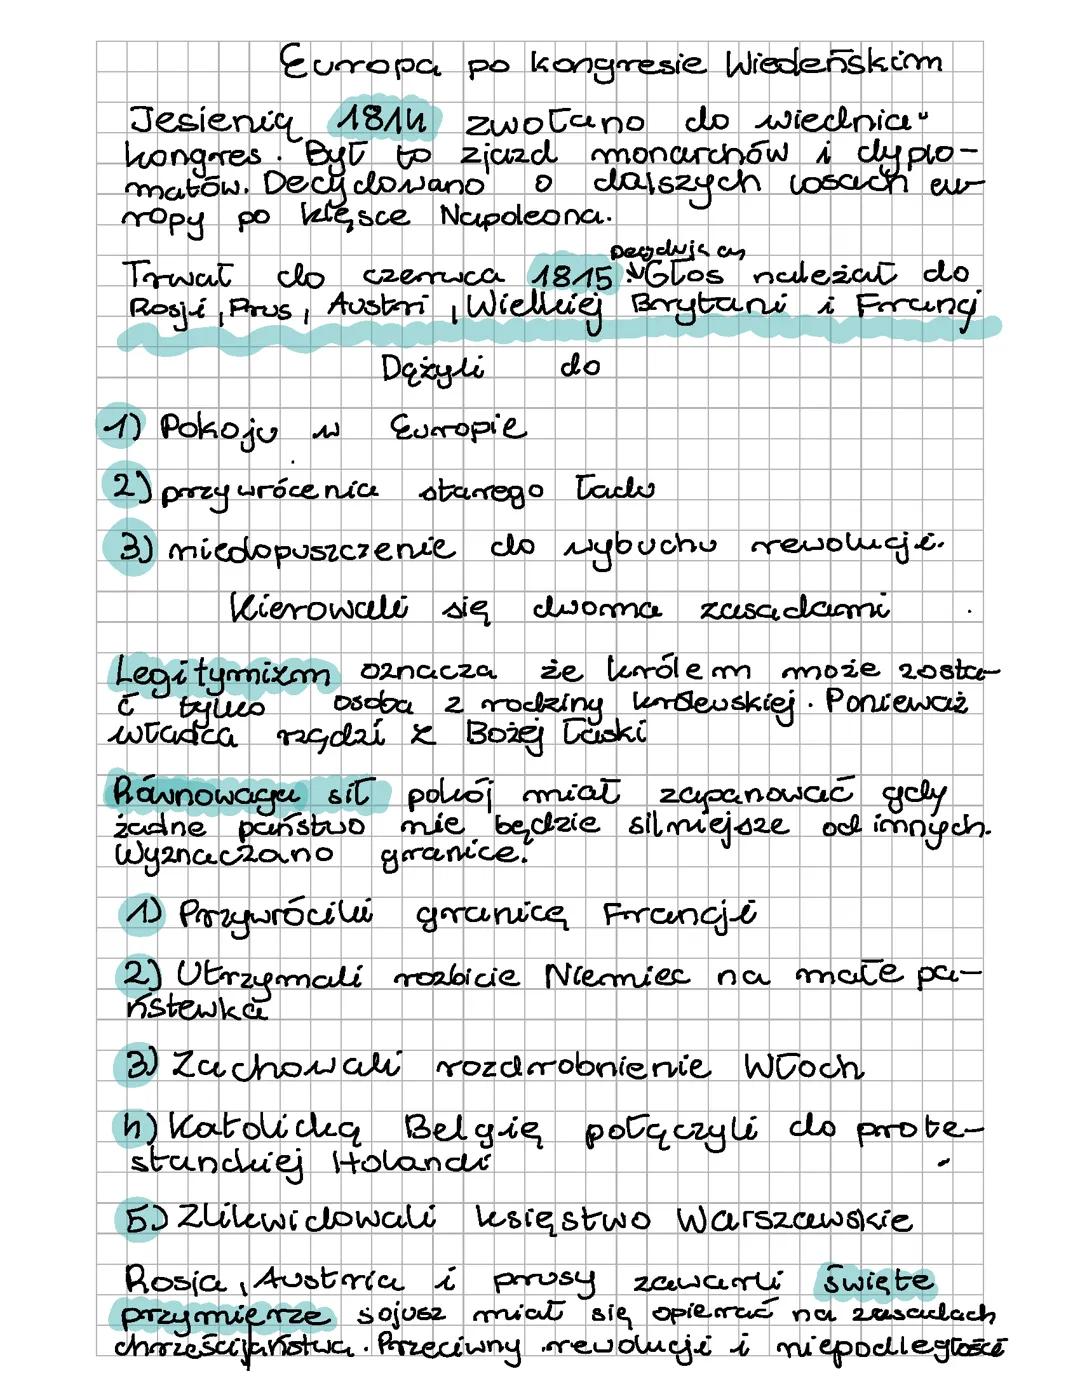 Europa po kongresie Wiedeńskim
Jesienią 1814 zwołano do wiednia
kongres. Był to zjazd monarchów i dyplo-
matów. Decydowano o dalszych losach eu-
ropy po klęsce Napoleona.
Decydujący
Trwał do czerwca 1815. Głos należał do
Rosji, Prus, Austri, Wielkiej Brytani i Francj
Dążyli do
1) Pokoju w Europie
2) przywrócenia starego ładu
3) niedopuszczenie do wybuchu rewolucji.
Kierowali się dwoma zasadami
Legitymizm oznacza że królem może zosta-
ć tylko osoba z rodziny królewskiej. Ponieważ
władca rządzi z Bożej łaski
Równowaga sił pokój miał zapanować gdy
żadne państwo nie będzie silniejsze od innych.
Wyznaczano granice.
1) Przywrócili granicę Francji
2) Utrzymali rozbicie Niemiec na małe pa-
ństewka
3) Zachowali rozdrobnienie Włoch
4) Katolicką Belgię połączyli do prote-
stanckiej Holandi
5) Zlikwidowali księstwo Warszawskie
Rosja, Austria i prusy zawarli święte
przymierze sojusz miał się opierać na zasadach
chrześcijaństwa. Przeciwny rewolucji i niepodległości